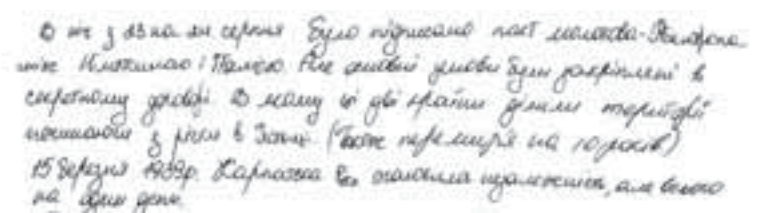 В ніч з 23 на 24 серпня було підписано пакт молотова-Ріббентропа
між Німеччиною і . Але основні умови були закріплені в
секретному договорі. В ньому ці дві країни ділили території
починаючи з річки в . (Також перемиря на 10 років)
15 березня 1939р. Карпатська оголосила незалежність, але всього
на один день.